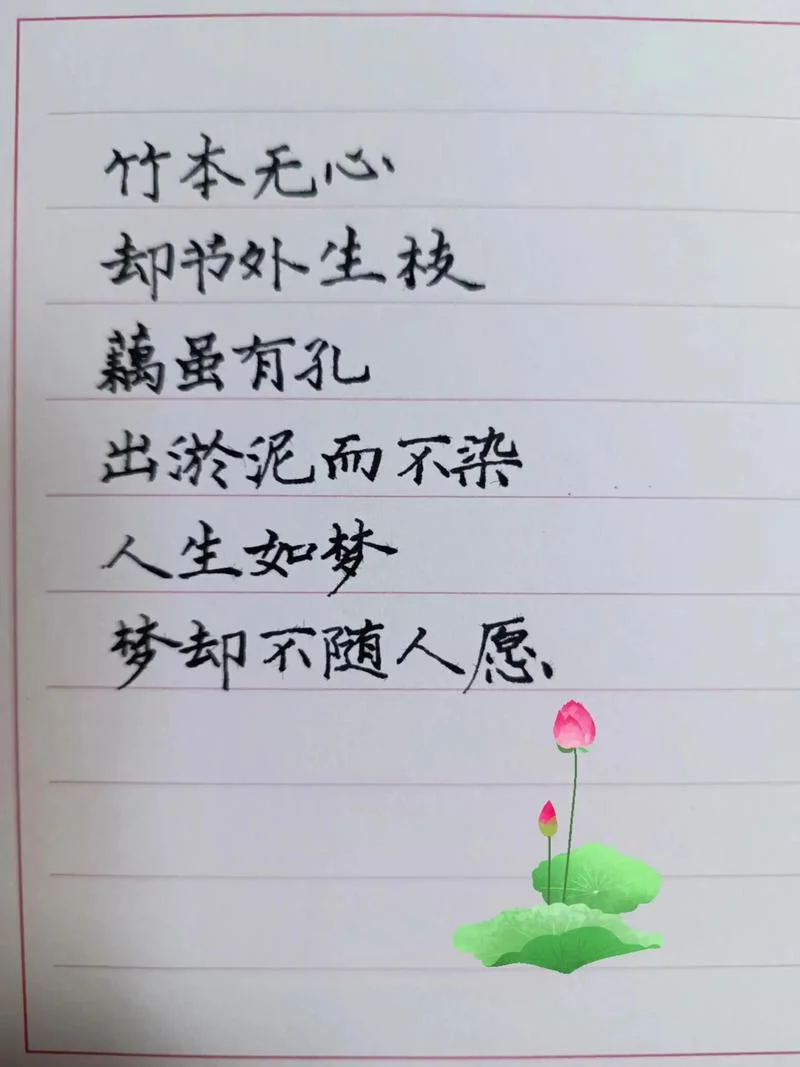 竹本无心
却节外生枝
藕虽有孔
出淤泥而不染
人生如梦
梦却不随人愿